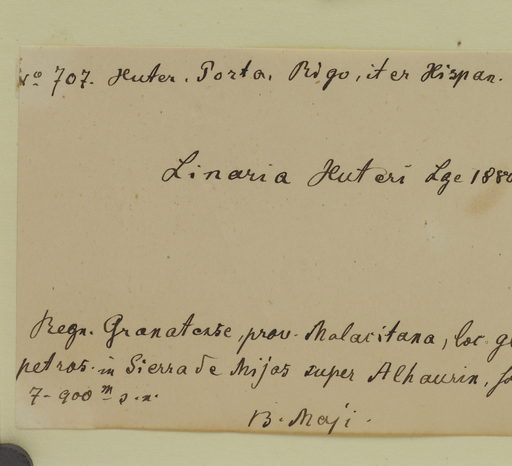 No 707. Huter. Porta. Rigo, iter Hispan.
Linaria Huteri Lge 1880
Regn. Granatense, prov. Malacitana, loc. gl
petros. in Sierra de Mijas super Alhaurin, so
7-900 m s.m.
13. Maji.